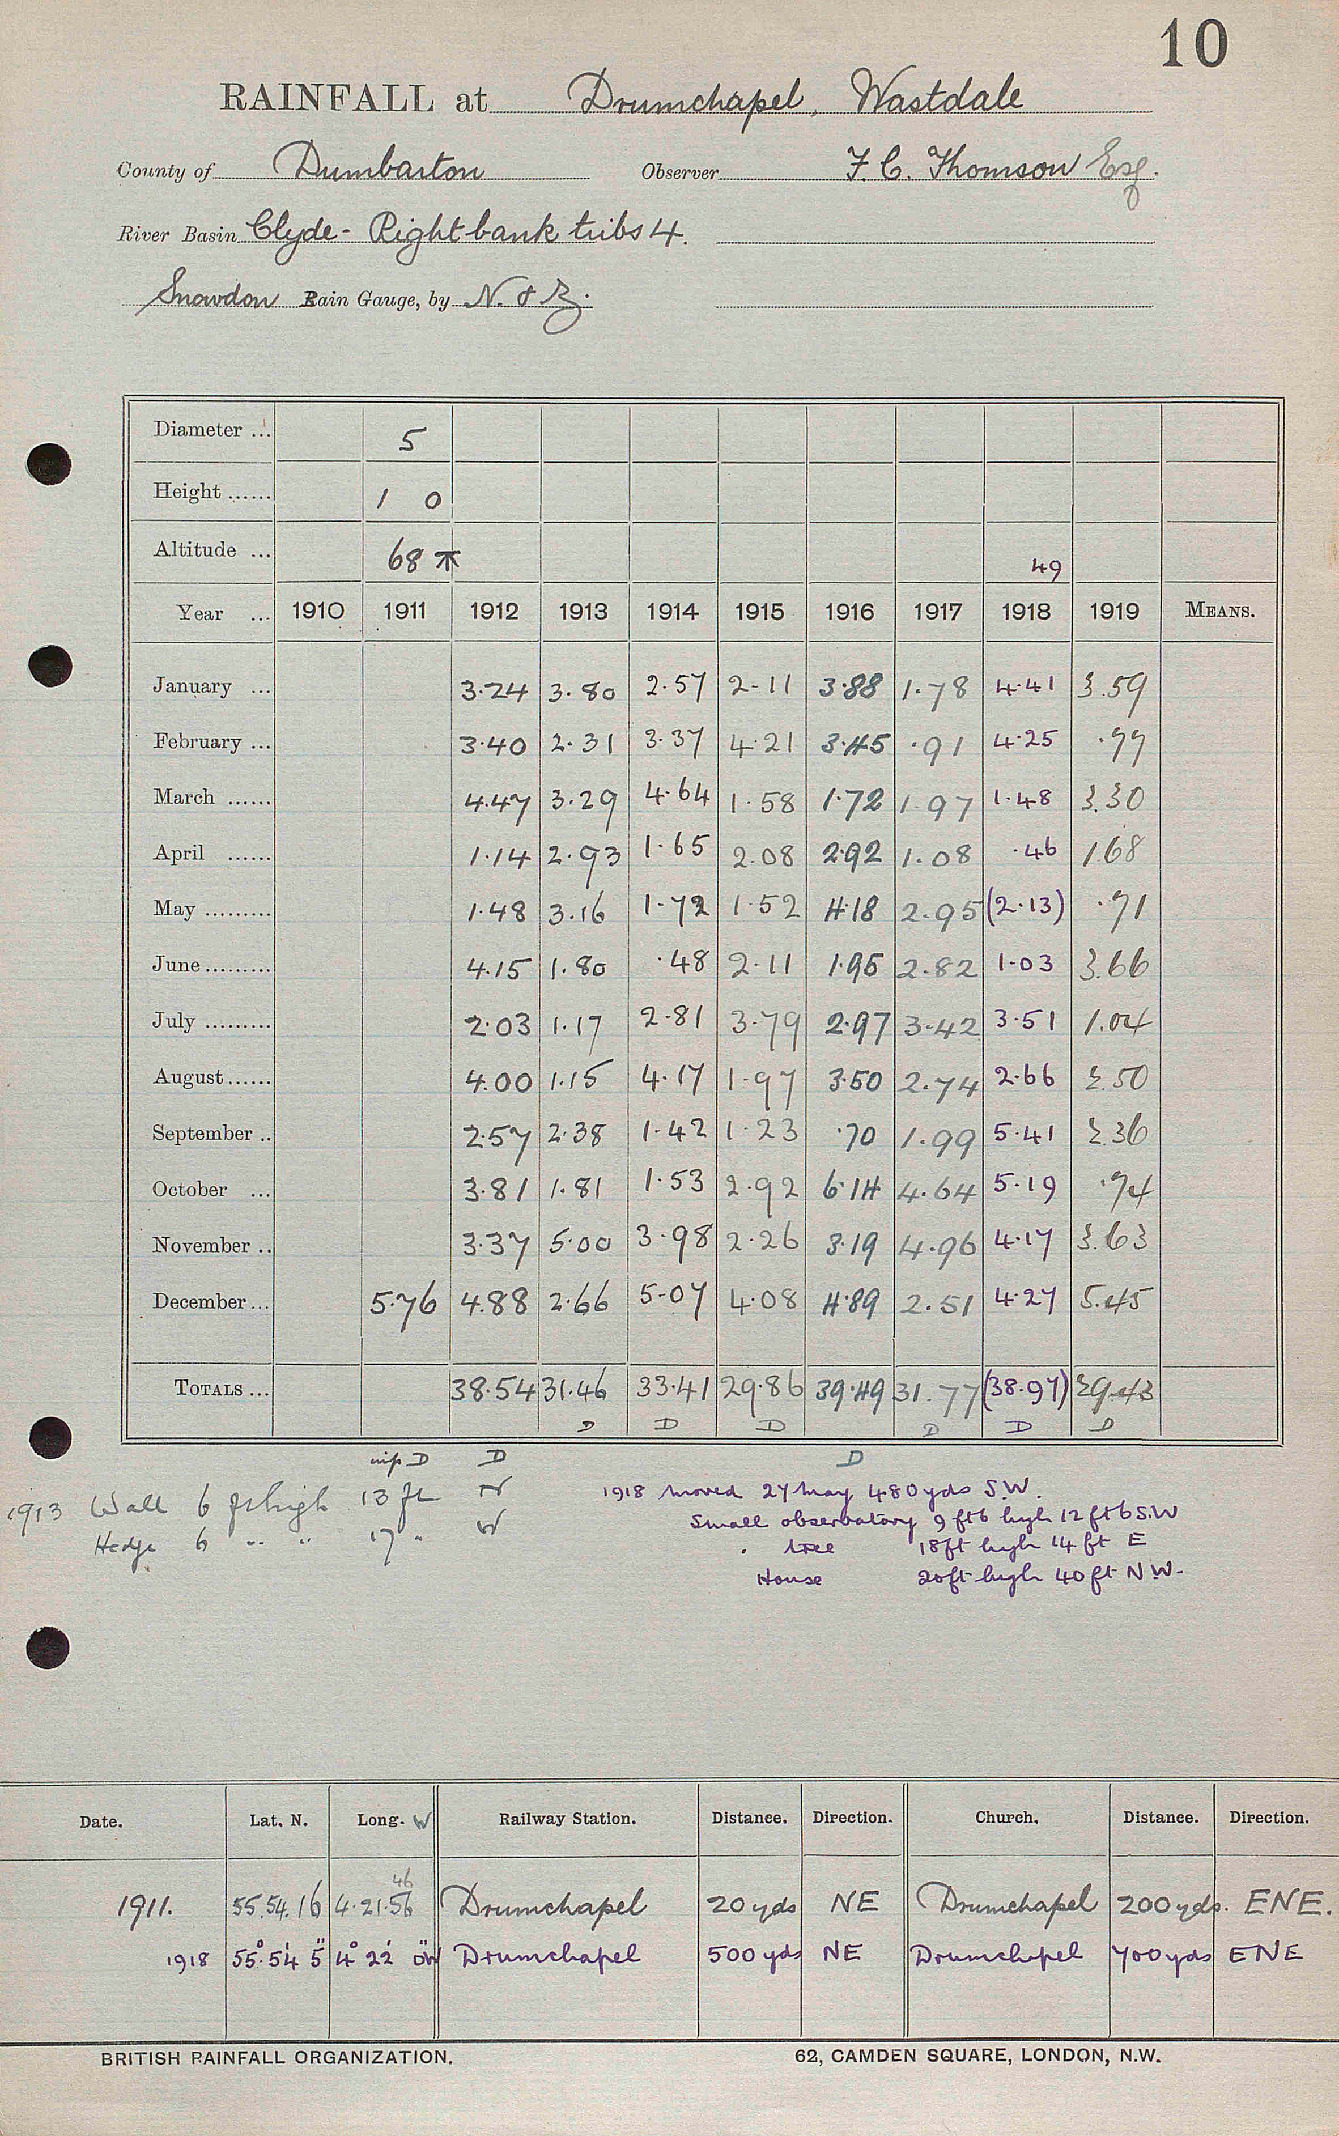 10
RAINFALL at Drumchapel, Wastdale
County of Dumbarton Observer F. C. Thomson Esq.
River Basin Clyde - Right bank tribs 4.
Snowdon Rain Gauge, by N. & Z.
Diameter ... 5
Height ...... 1 0
Altitude ... 68 49
Year ... 1910 1911 1912 1913 1914 1915 1916 1917 1918 1919 MEANS.
January ... 3.24 3.80 2.57 2.11 3.88 1.78 4.41 3.59
February ... 3.40 2.31 3.37 4.21 3.45 .91 4.25 .99
March ...... 4.47 3.29 4.64 1.58 1.72 1.97 1.48 3.30
April ...... 1.14 2.93 1.65 2.08 2.92 1.08 .46 1.68
May ......... 1.48 3.16 1.72 1.52 4.18 2.95 (2.13) .71
June ......... 4.15 1.80 .48 2.11 1.95 2.82 1.03 3.66
July ......... 2.03 1.17 2.81 3.79 2.97 3.42 3.51 1.04
August ...... 4.00 1.15 4.17 1.97 3.50 2.74 2.66 2.50
September .. 2.57 2.38 1.42 1.23 .70 1.99 5.41 2.36
October ... 3.81 1.81 1.53 2.92 6.14 4.64 5.19 .74
November .. 3.37 5.00 3.98 2.26 3.19 4.96 4.17 3.63
December ... 5.76 4.88 2.66 5.07 4.08 4.89 2.51 4.27 5.45
TOTALS ... 38.54 31.46 33.41 29.86 39.49 31.77 (38.97) 29.43
D D D D D D
D D D
1913 Wall 6 ft high 13 ft N
Hedge 6 " " 17 " W
1918 moved 27 May 480 yds S.W.
Small observatory 9 ft 6 high 12 ft 6 S.W
" tree 18 ft high 14 ft E
House 20 ft high 40 ft N.W.
Date. Lat. N. Long. W Railway Station. Distance. Direction. Church. Distance. Direction.
46
1911. 55.54.16 4.21.56 Drumchapel 20 yds NE Drumchapel 200 yds. ENE.
1918 55° 54' 5" 4° 22' 0" W Drumchapel 500 yds NE Drumchapel 700 yds ENE
BRITISH RAINFALL ORGANIZATION. 62, CAMDEN SQUARE, LONDON, N.W.